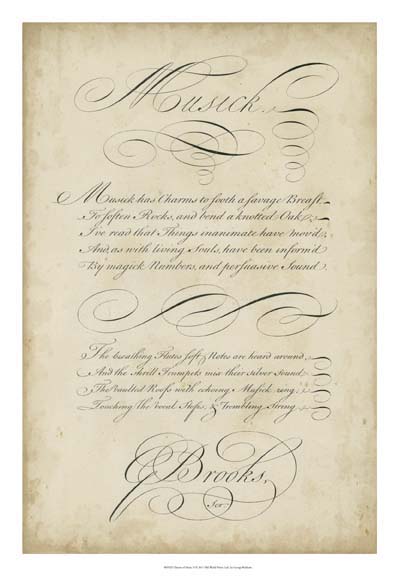 Musick.
Musick has Charms to sooth a savage Breast
To soften Rocks, and bend a knotted Oak
I've read that Things inanimate have mov'd
And, as with living Souls, have been inform'd
By magick Numbers, and persuasive Sound.
The breathing Flutes soft Notes are heard around,
And the shrill Trumpets mix their silver Sound
The vaulted Roofs with echoing Musick rung
Touching the vocal Stops, & Trembling String.
Brooks,
Scr.